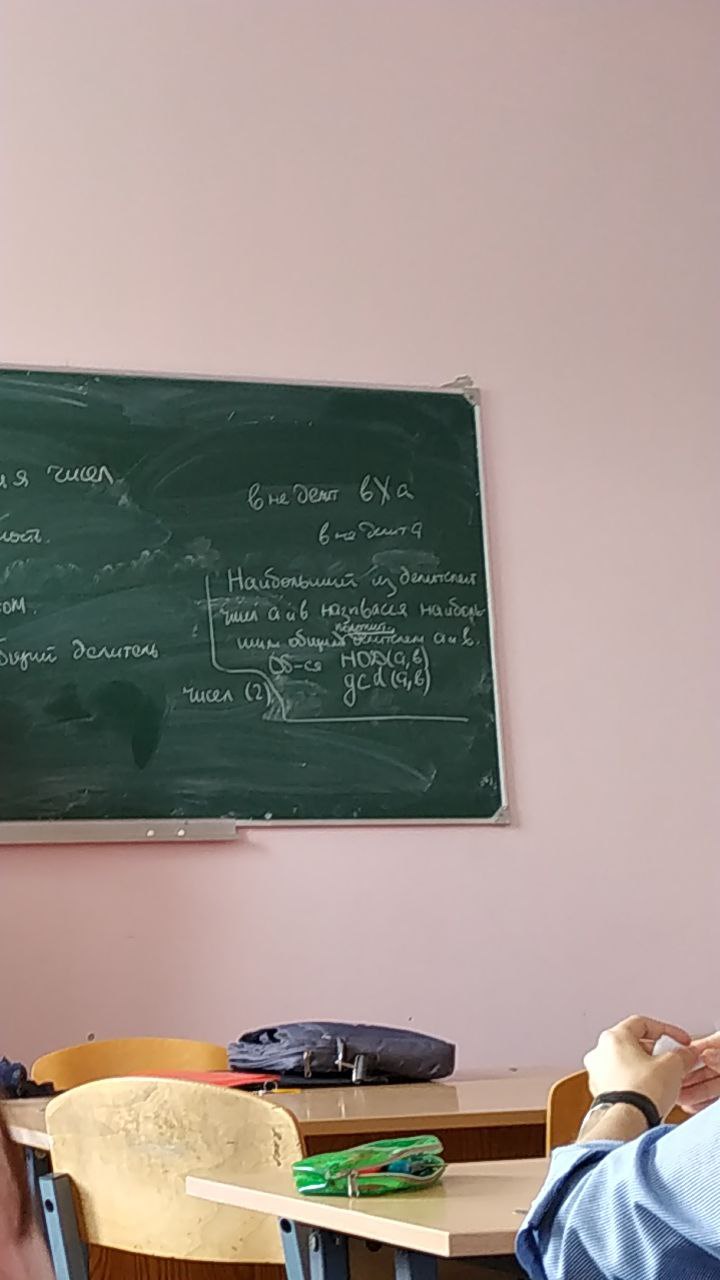 чисел
в не делит в∤а
ность.
в не делит а
Наибольший из делителей
ом.
чисел а и в называся наиболь-
полож.
шим общим делителем а и в.
бщий делитель
Об-ся НОД(а,в)
чисел (2)
gcd(а,в)